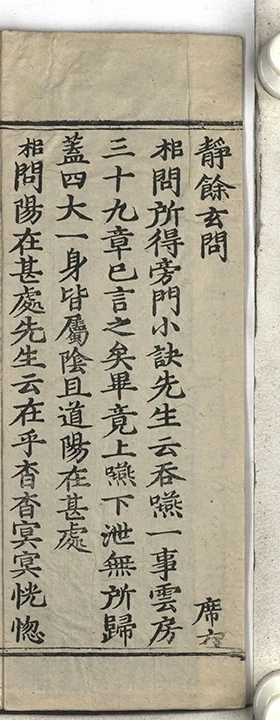 靜餘玄問
席六
相問所得旁門小訣先生云吞嚥一事雲房
三十九章已言之矣畢竟上嚥下泄無所歸
蓋四大一身皆屬陰且道陽在甚處
相問陽在甚處先生云在乎杳杳冥冥恍惚